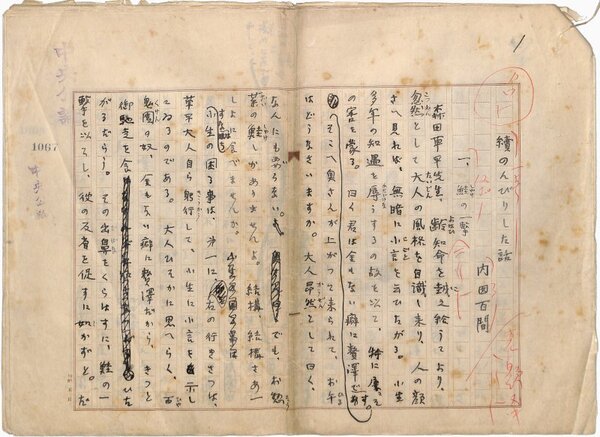 1
續のんびりした話
内田百間
一、鮭の一撃
森田草平先生、齢知命を越え給うており、
忽然として大人の風格を自識し来り、人の顔
さへ見れば、無暗に小言を云ひたがる。小生
多年の知遇を辱うするの故を以て、特に屢〻そ
の害を蒙る。曰く君は金もない癖に贅澤であ
そこへ奥さんが上がつて来られて、お午
はどうなさいますか。大人昂然として曰く、
なんにも でも、お惣
菜の鮭しかありませんよ。結構結構さあ一
しよに食べませんか。
小生の困る事は、第一に右の行きさつは、
草平大人自ら躬行して、小生に小言を示し
てゐるのである。大人ひそかに思へらく、百
鬼園の奴、金もない癖に贅澤だから、きつと
御馳走を食ひた
がるだらう。その出鼻をくらはすに、鮭の一
撃を以てし、彼の反省を促すに如かずと。だ
1067